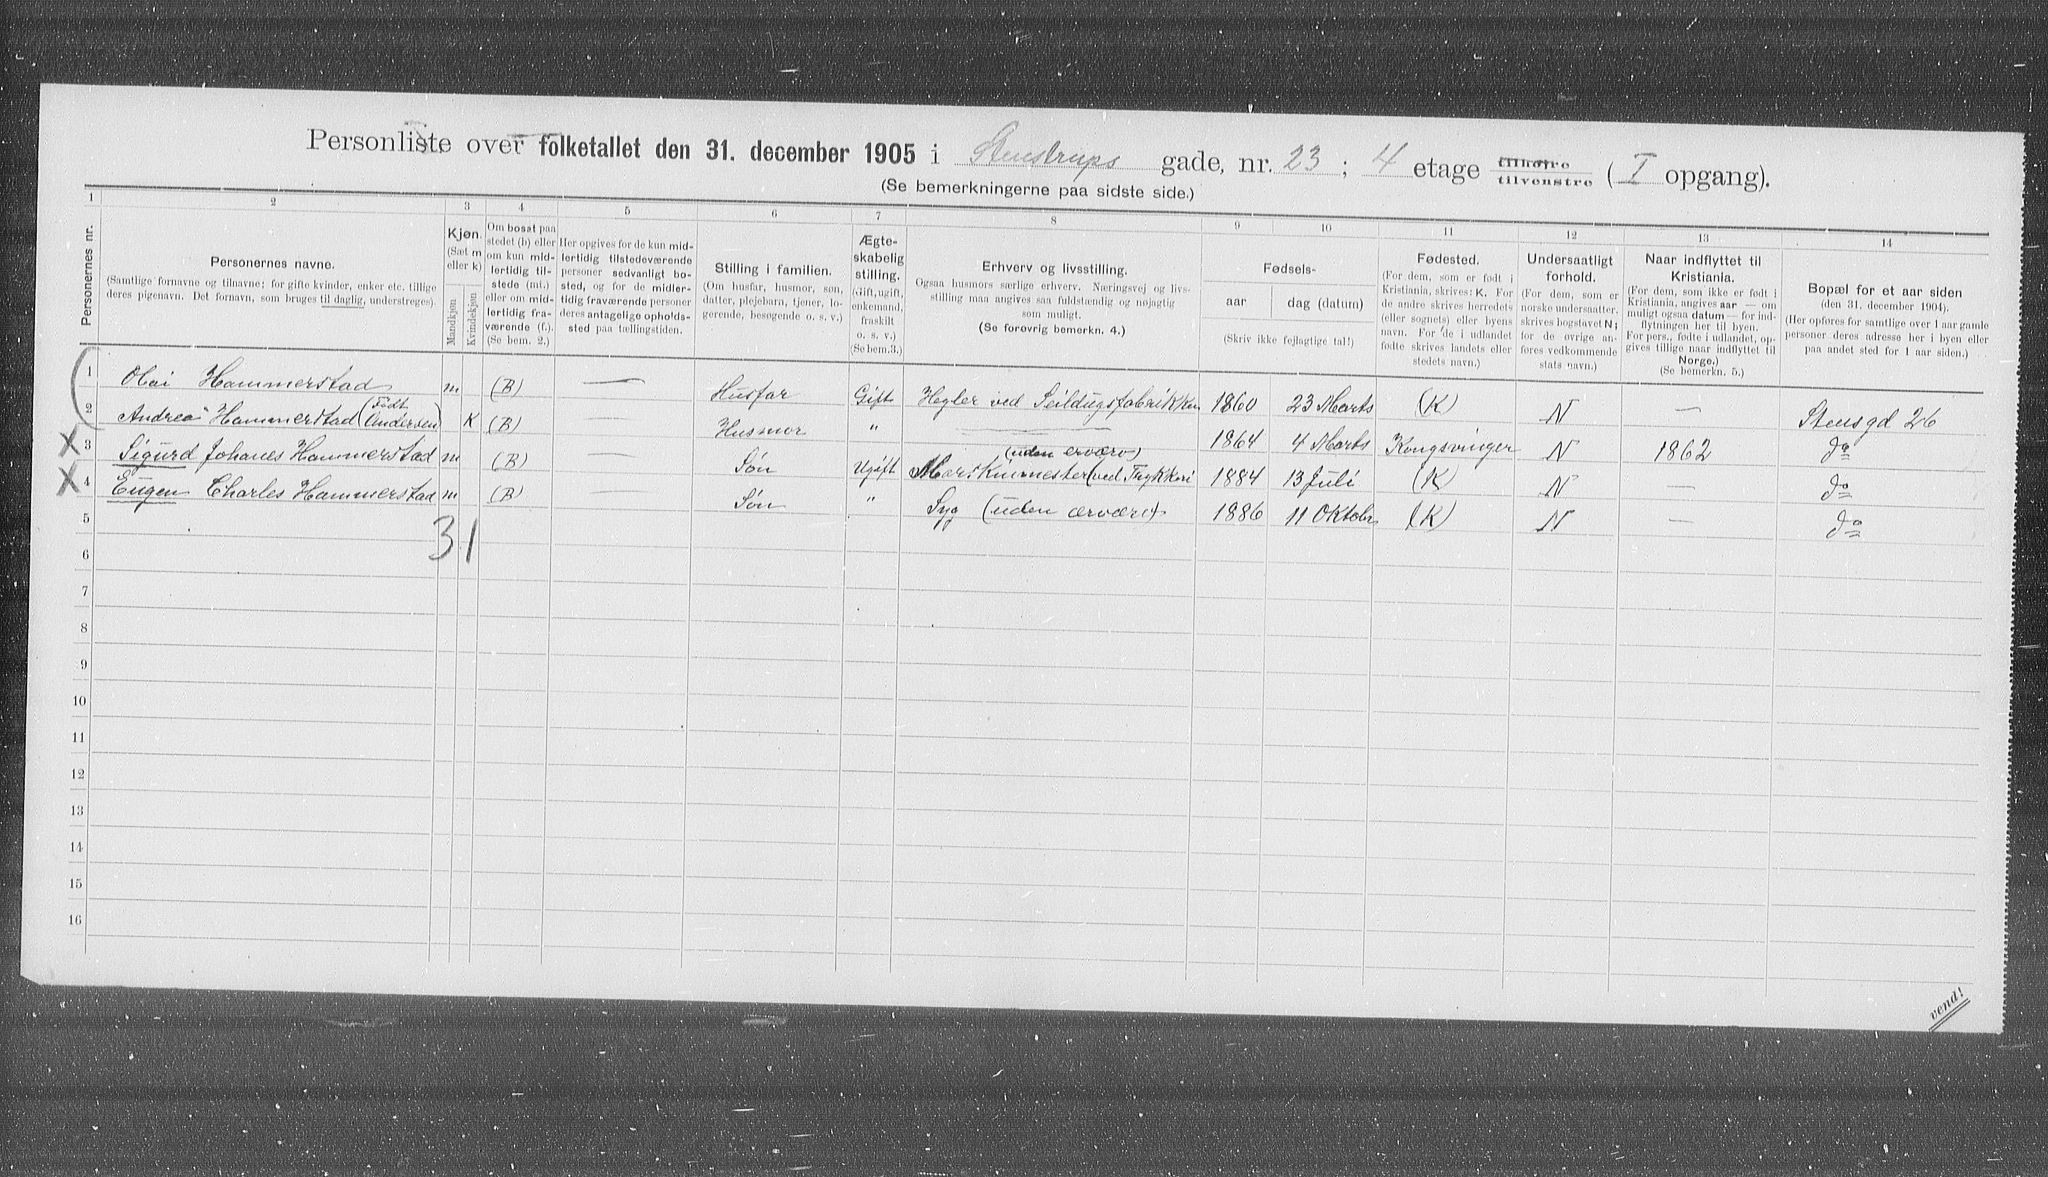 Personliste over folketallet den 31. december 1905 i Stenstrups gade, nr. 23 ; 4 etage tilhøire tilvenstre ( I opgang).
(Se bemerkningerne paa sidste side.)
1 2 3 4 5 6 7 8 9 10 11 12 13 14
Personernes nr.
Personernes navne.
(Samtlige fornavne og tilnavne; for gifte kvinder, enker etc. tillige
deres pigenavn. Det fornavn, som bruges til daglig, understreges).
Kjøn.
(Sæt m
eller k)
Mandkjøn
Kvindekjøn
Om bosat paa
stedet (b) eller
om kun mid-
lertidig til-
stede (mt.)
eller om mid-
lertidig fra-
værende (f.).
(Se bem. 2.)
Her opgives for de kun mid-
lertidig tilstedeværende
personer sedvanlig bo-
sted, og for de midler-
tidig fraværende personer
deres antagelige opholds-
sted paa tællingstiden.
Stilling i familien.
(Om husfar, husmor, søn,
datter, plejebarn, tjener, lo-
gerende, besøgende o. s. v.)
Ægte-
skabelig
stilling.
(Gift, ugift,
enkemand,
fraskilt
o. s. v.)
(Se bem.3.)
Erhverv og livsstilling.
Ogsaa husmors særlige erhverv. Næringsvej og livs-
stilling maa angives saa fuldstændig og nøjagtig
som muligt.
(Se forøvrig bemerkn. 4.)
Fødsels-
aar
dag (datum)
(Skriv ikke fejlagtige tal!)
Fødested.
(For dem, som er født i
Kristiania, skrives: K. For
de andre skrives herredets
(eller sognets) eller byens
navn. For de i udlandet
fødte skrives landets eller
stedets navn.)
Undersaatligt
forhold.
(For dem, som er
norske undersaatter,
skrives bogstavet N;
for de øvrige an-
føres vedkommende
stats navn.)
Naar indflyttet til
Kristiania.
(For dem, som ikke er født i
Kristiania, angives aar — om
muligt ogsaa datum — for ind-
flytningen her til byen.
For pers., fødte i udlandet, op-
gives tillige naar indflyttet til
Norge.)
(Se bemerkn. 5.)
Bopæl for et aar siden
(den 31. december 1904).
(Her opføres for samtlige over 1 aar gamle
personer deres adresse her i byen eller
paa andet sted for 1 aar siden.)
1 Olai Hammerstad m (B) — Husfar Gift Hegler ved Seildugsfabrikken 1860 23 Marts (K) N — Stensgd 26
2 Andrea Hammerstad (Født Andersen) K (B) — Husmor " (uden erværv) 1864 4 Marts Kongsvinger N 1862 do
3 Sigurd Johanes Hammerstad m (B) — Søn Ugift Maskinmester (ved Trykkeri 1884 13 Juli (K) N — do
4 Eugen Charles Hammerstad m (B) — Søn " Syg (uden ærværv) 1886 11 Oktobr (K) N — do
31
5
6
7
8
9
10
11
12
13
14
15
16
vend!